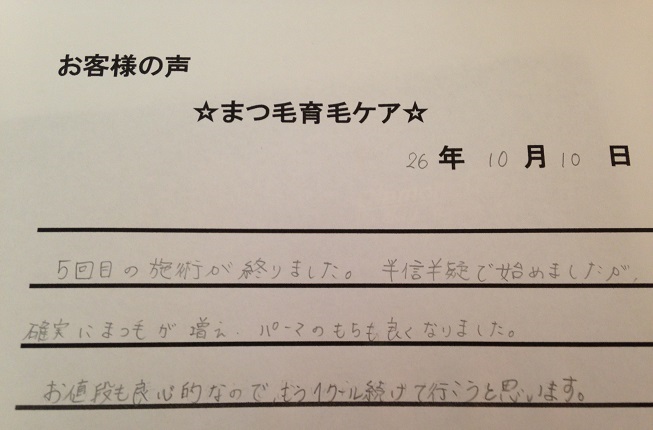 お客様の声
☆まつ毛育毛ケア☆
26年 10月10日
5回目の施術が終りました。半信半疑で始めましたが、
確実にまつ毛が増え、パーマのもちも良くなりました。
お値段も良心的なので、もう1クール続けて行こうと思います。